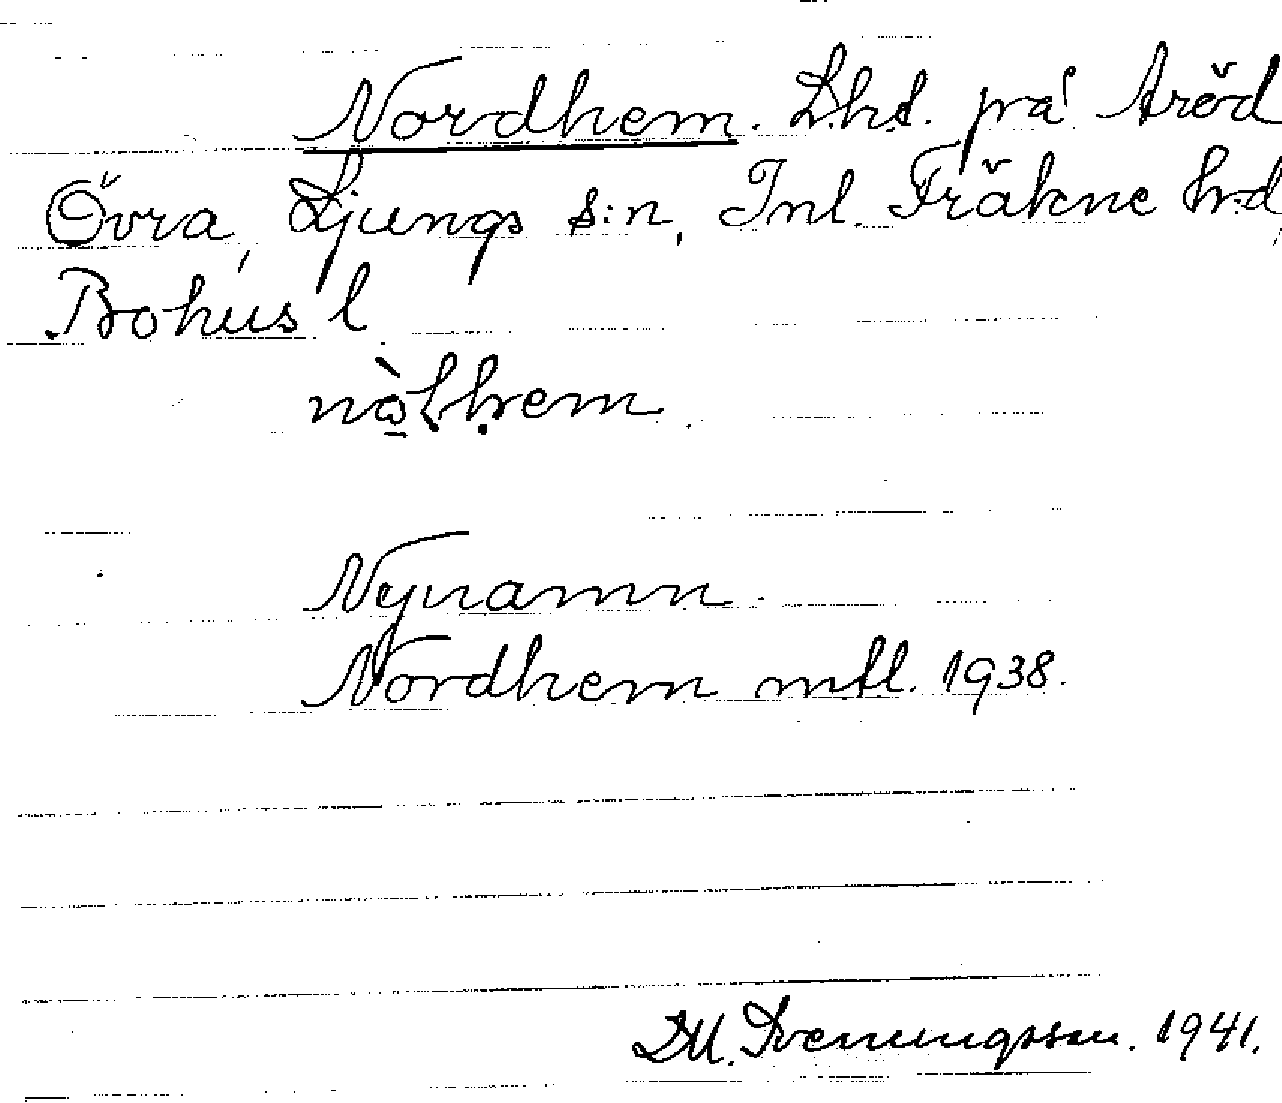 Nordhem. Lht. på Aröd
Övra, Ljungs s:n, Inl. Fräkne hd,
Bohus l.
Nynamn.
Nordhem mtl. 1938.
D.M. Svenningsson. 1941.